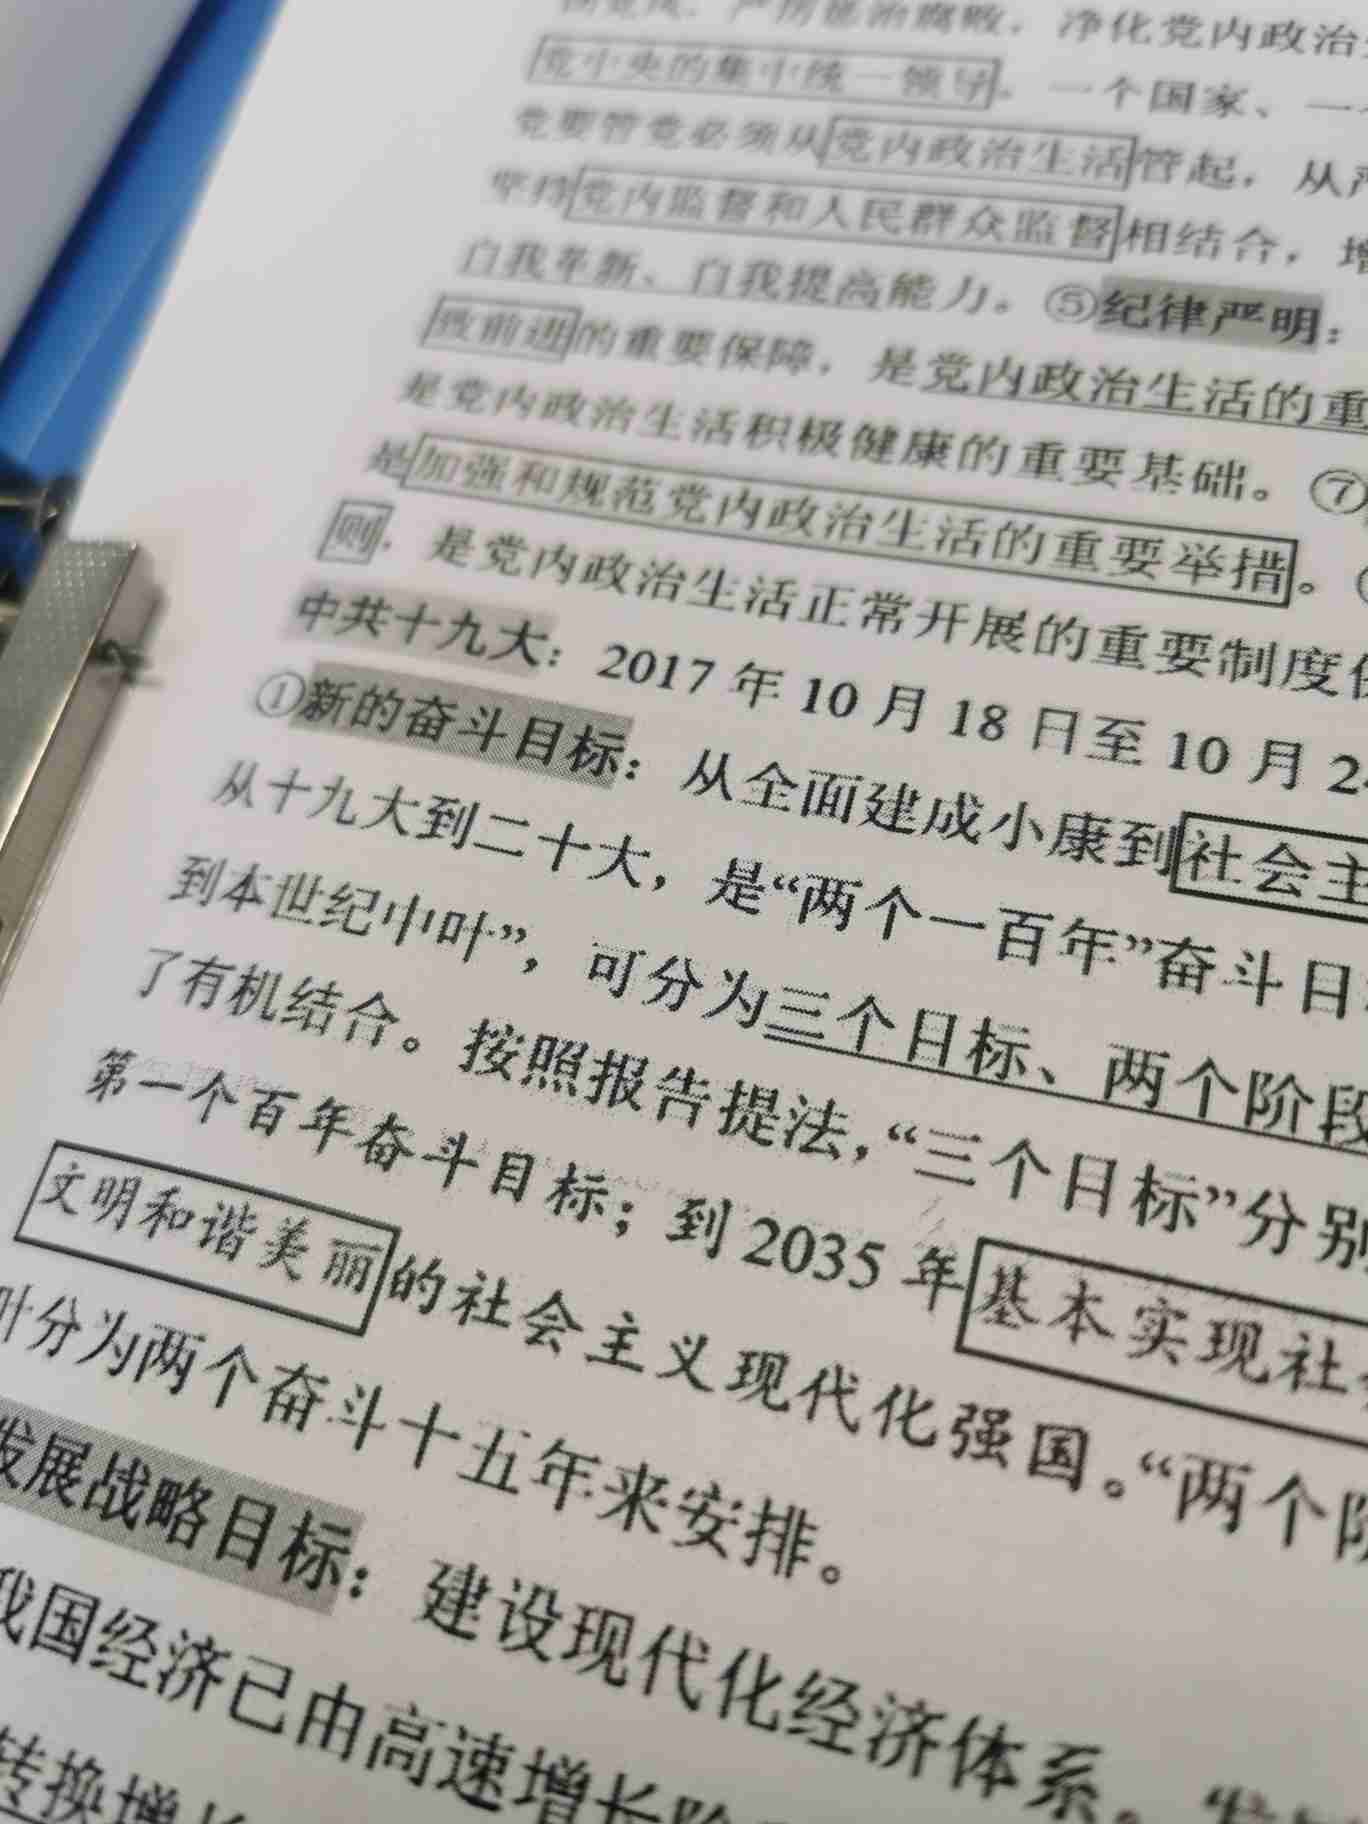 严厉惩治腐败，净化党内政治
党中央的集中统一领导。一个国家、一
党要管党必须从党内政治生活管起，从
坚持党内监督和人民群众监督相结合，增
自我革新、自我提高能力。⑤纪律严明：
致前进的重要保障，是党内政治生活的重
是党内政治生活积极健康的重要基础。⑦
是加强和规范党内政治生活的重要举措。
则，是党内政治生活正常开展的重要制度
中共十九大：2017 年 10 月 18 日至 10 月 2
①新的奋斗目标：从全面建成小康到社会主
从十九大到二十大，是“两个一百年”奋斗目
到本世纪中叶”，可分为三个目标、两个阶段
了有机结合。按照报告提法，“三个目标”分别
第一个百年奋斗目标；到 2035 年基本实现社
文明和谐美丽的社会主义现代化强国。“两个阶
叶分为两个奋斗十五年来安排。
发展战略目标：建设现代化经济体系。
我国经济已由高速增长阶
转换增长